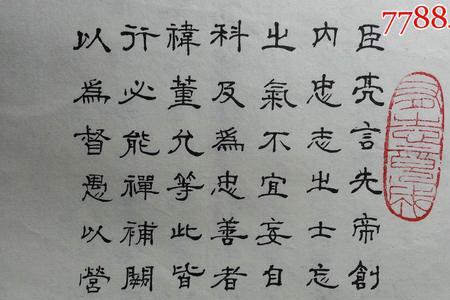 7788
臣亮言先帝創
内忠志之士忘
之氣不宜妄自
科及為忠善者
禕董允等此皆
行必能禆補闕
以為督愚以營